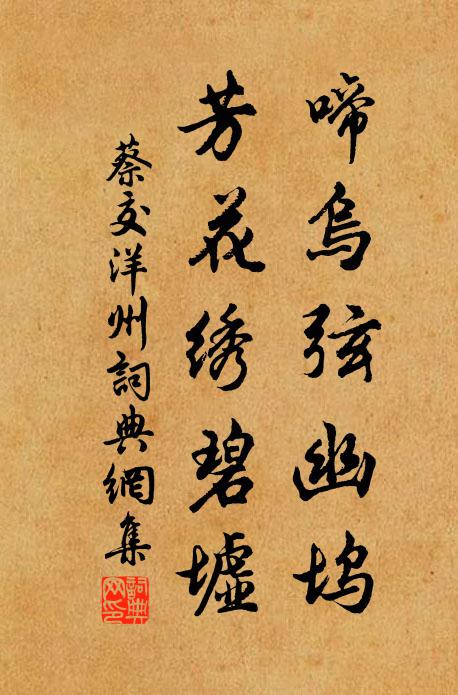 啼鳥弦幽塢
芳花绣碧墟
蔡交洋州詞典網集
詞典網印